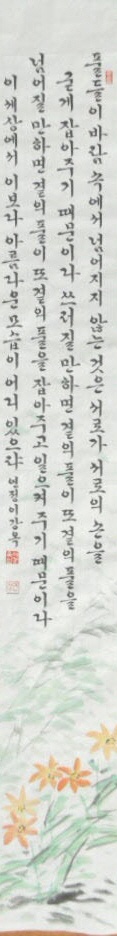 풀들이 바람 속에서 넘어지지 않는 것은 서로가 서로의 손을
굳게 잡아주기 때문이다 쓰러질 만하면 곁의 풀이 또 곁의 풀을
넘어질 만하면 곁의 풀이 또 곁의 풀을 잡아주고 일으켜 주기 때문이다
이 세상에서 이보다 아름다운 모습이 어디 있으랴